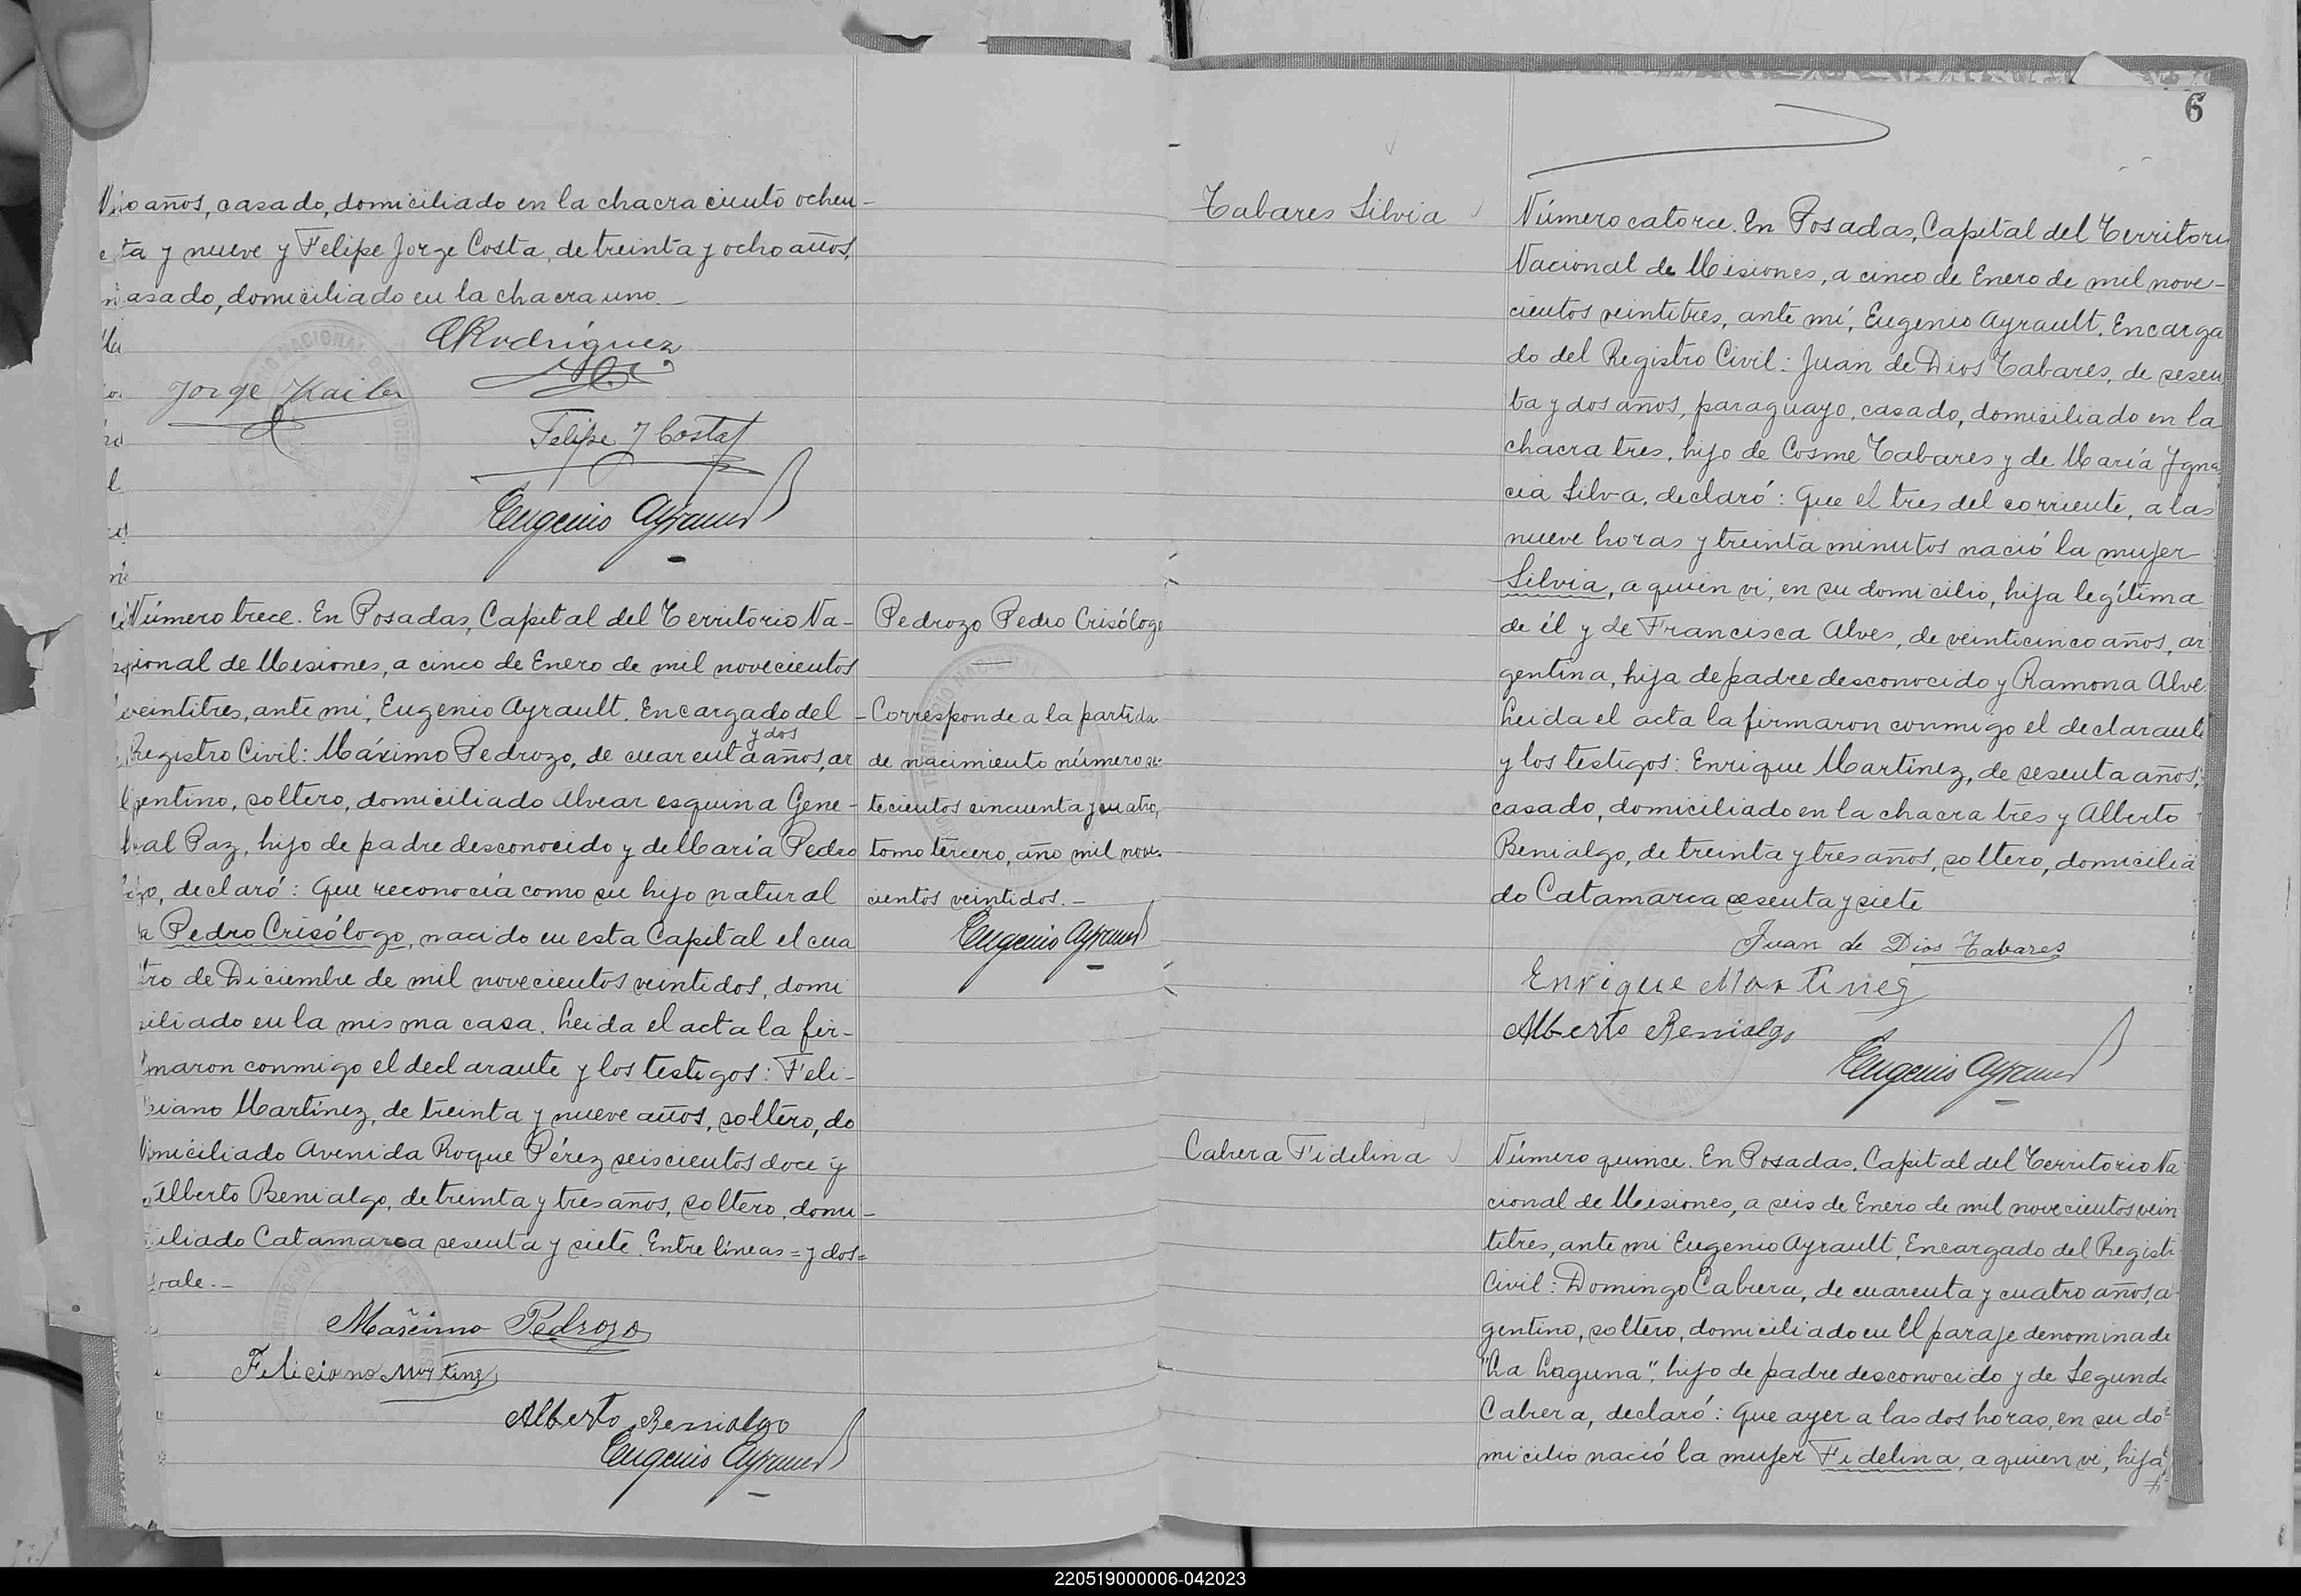 años, casado, domiciliado en la chacra ciento ochen-
ta y nueve y Felipe Jorge Costa, de treinta y ocho años,
asado, domiciliado en la chacra uno.-
Rodríguez
Jorge
Felipe J Costa
Eugenio Ayrault
Número trece. En Posadas, Capital del Territorio Na-
cional de Misiones, a cinco de Enero de mil novecientos
veintitres, ante mí, Eugenio Ayrault. Encargado del
y dos
Registro Civil: Máximo Pedrozo, de cuarenta años, ar
gentino, soltero, domiciliado Alvear esquina Gene-
ral Paz, hijo de padre desconocido y de María Pedro
zo, declaró: Que reconocía como su hijo natural
a Pedro Crisólogo, nacido en esta Capital el cua
tro de Diciembre de mil novecientos veintidos, domi
ciliado en la misma casa. Leida el acta la fir-
maron conmigo el declarante y los testigos: Feli-
ciano Martínez, de treinta y nueve años, soltero, do
miciliado Avenida Roque Pérez seiscientos doce y
Alberto Benialgo, de treinta y tres años, soltero, domi-
ciliado Catamarca sesenta y siete. Entre líneas=y dos=
vale.-
Máximo Pedrozo
Feliciano Martinez
Alberto Benialgo
Eugenio Ayrault
Pedrozo Pedro Crisólogo
-Corresponde a la partida
de nacimiento número se-
tecientos cincuenta y cuatro,
tomo tercero, año mil nove-
cientos veintidos.-
Eugenio Ayrault
6
Tabares Silvia
Número catorce. En Posadas, Capital del Territorio
Nacional de Misiones, a cinco de Enero de mil nove-
cientos veintitres, ante mí, Eugenio Ayrault. Encarga
do del Registro Civil: Juan de Dios Tabares, de sesen
ta y dos años, paraguayo, casado, domiciliado en la
chacra tres, hijo de Cosme Tabares y de María Ygna
cia Silva, declaró: Que el tres del corriente, a las
nueve horas y treinta minutos nació la mujer
Silvia, a quien vi, en su domicilio, hija legítima
de él y de Francisca Alves, de veinticinco años, ar
gentina, hija de padre desconocido y Ramona Alve
Leida el acta la firmaron conmigo el declarante
y los testigos: Enrique Martínez, de sesenta años,
casado, domiciliado en la chacra tres y Alberto
Benialgo, de treinta y tres años, soltero, domicilia
do Catamarca sesenta y siete
Juan de Dios Tabares
Enrique Martinez
Alberto Benialgo
Eugenio Ayrault
Cabrera Fidelina
Número quince. En Posadas, Capital del Territorio Na
cional de Misiones, a seis de Enero de mil novecientos vein
titres, ante mi Eugenio Ayrault, Encargado del Registr
Civil: Domingo Cabrera, de cuarenta y cuatro años, a
gentino, soltero, domiciliado en el paraje denominado
"La Laguna", hijo de padre desconocido y de Segunda
Cabrera, declaró: Que ayer a las dos horas, en su do
micilio nació la mujer Fidelina, a quien vi, hija
220519000006-042023